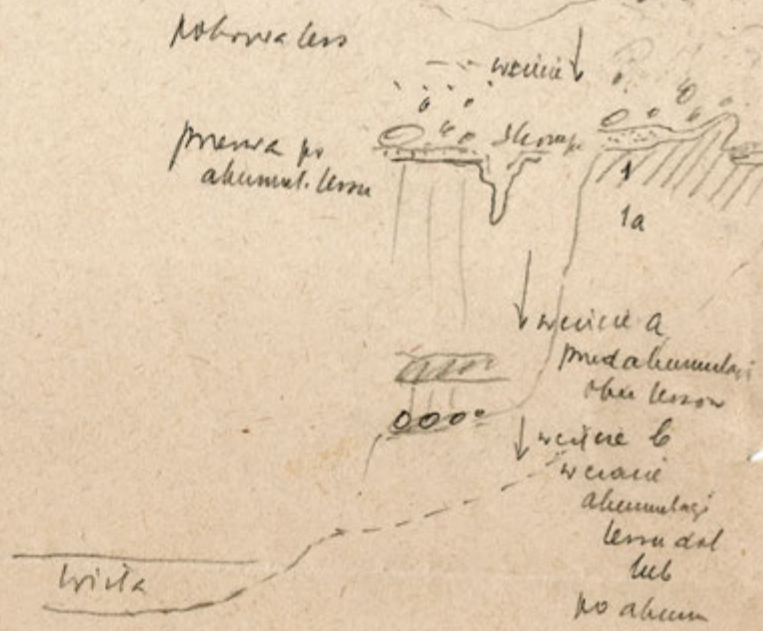 pokrywa less
wcięcie
przerwa po
akumul. lessu
1
1a
wcięcie a
przed akumulacji
obu lessów
wcięcie b
w czasie
akumulacji
lessu dol
lub
po akum
Wisła